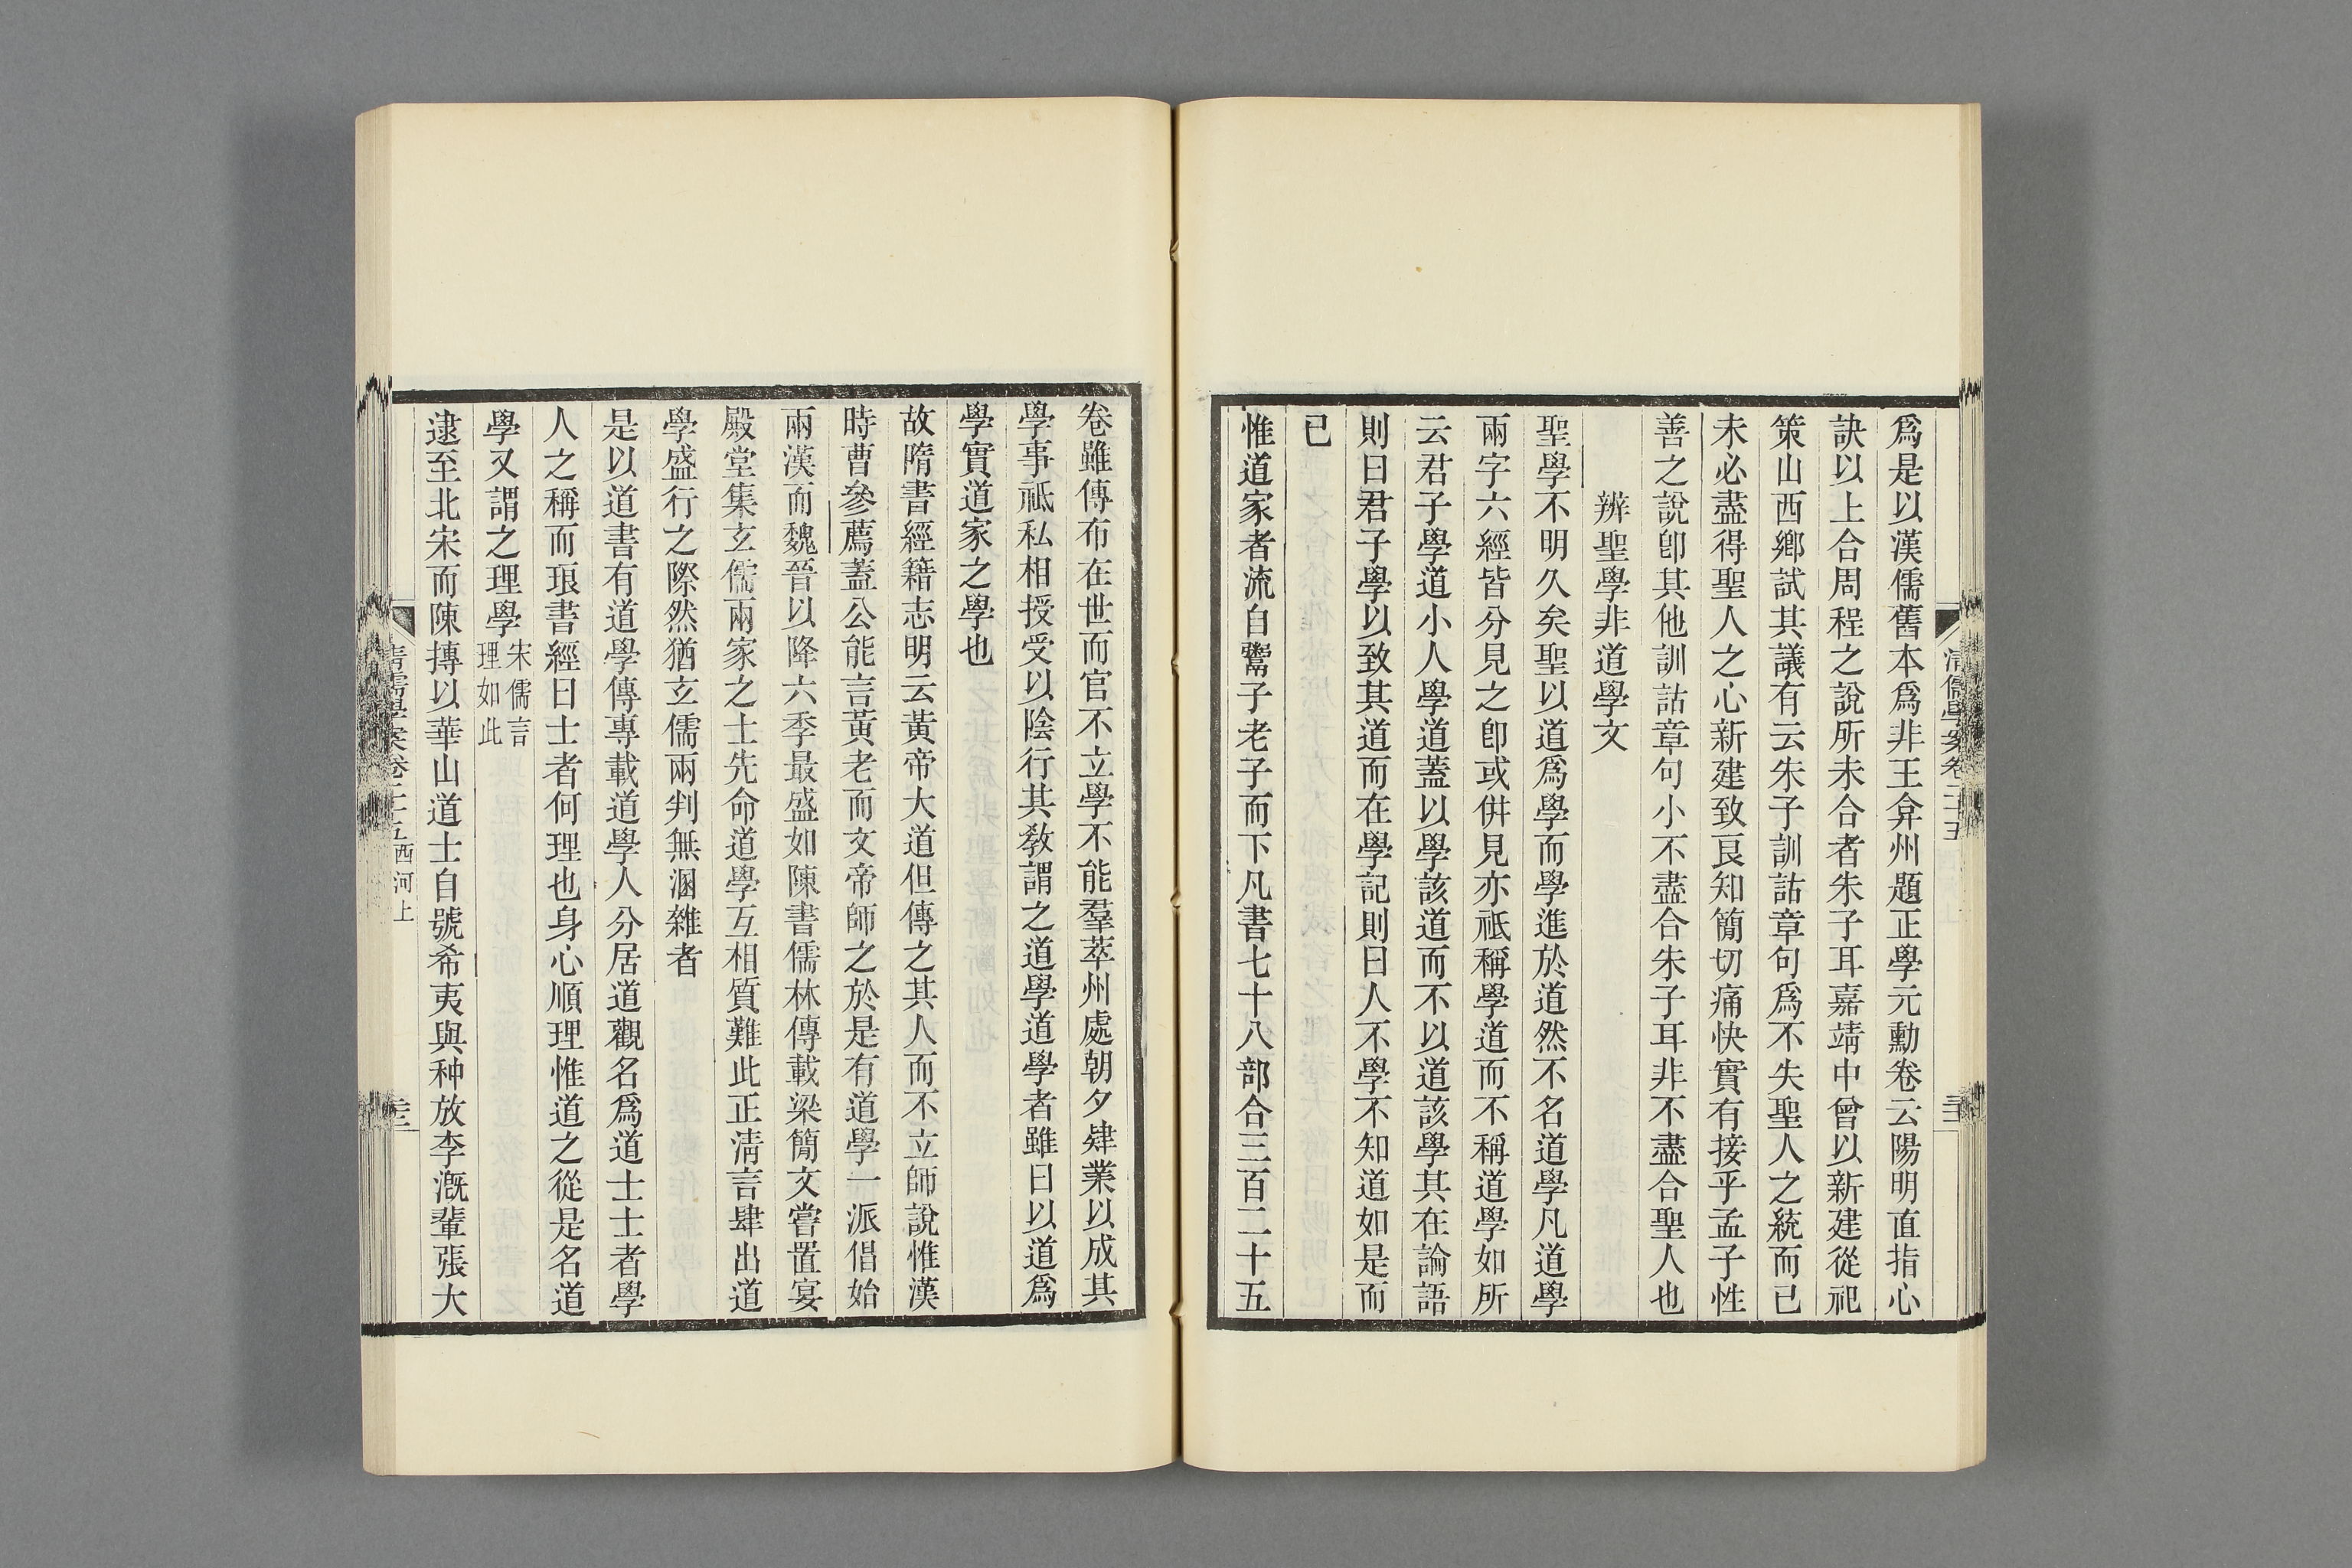 爲是以漢儒舊本爲非王弇州題正學元勳卷云陽明直指心
訣以上合周程之說所未合者朱子耳嘉靖中曾以新建從祀
策山西鄉試其議有云朱子訓詁章句爲不失聖人之統而已
未必盡得聖人之心新建致良知簡切痛快實有接乎孟子性
善之說卽其他訓詁章句小不盡合朱子耳非不盡合聖人也
辨聖學非道學文
聖學不明久矣聖以道爲學而學進於道然不名道學凡道學
兩字六經皆分見之卽或倂見亦祗稱學道而不稱道學如所
云君子學道小人學道蓋以學該道而不以道該學其在論語
則曰君子學以致其道而在學記則曰人不學不知道如是而
已
惟道家者流自鬻子老子而下凡書七十八部合三百二十五
清儒學案卷二十五
卷雖傳布在世而官不立學不能羣萃州處朝夕肄業以成其
學事祗私相授受以陰行其敎謂之道學道學者雖曰以道爲
學實道家之學也
故隋書經籍志明云黃帝大道但傳之其人而不立師說惟漢
時曹參薦蓋公能言黃老而文帝師之於是有道學一派倡始
兩漢而魏晉以降六季最盛如陳書儒林傳載梁簡文嘗置宴
殿堂集玄儒兩家之士先命道學互相質難此正淸言肆出道
學盛行之際然猶玄儒兩判無溷雜者
是以道書有道學傳專載道學人分居道觀名爲道士士者學
人之稱而琅書經曰士者何理也身心順理惟道之從是名道
學又謂之理學宋儒言理如此
逮至北宋而陳摶以華山道士自號希夷與种放李溉輩張大
清儒學案卷二十五西河上